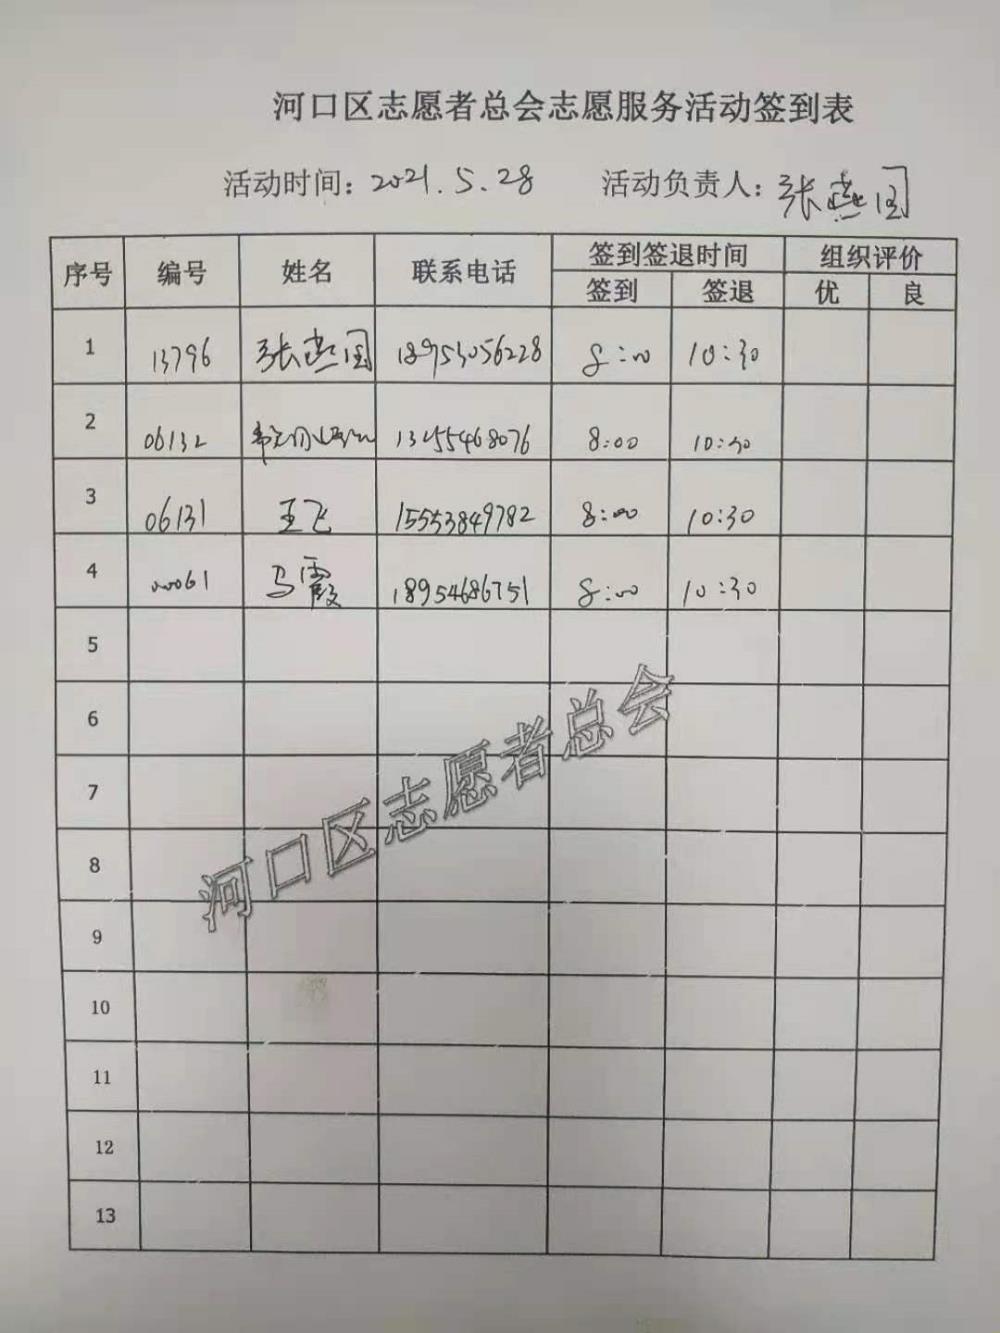 河口区志愿者总会志愿服务活动签到表
活动时间：2021.5.28 活动负责人：张燕国
序号 编号 姓名 联系电话 签到签退时间 组织评价
签到 签退 优 良
1 13796 张燕国 18953056228 8:00 10:30
2 06132 8:00 10:30
3 06131 王飞 15553849782 8:00 10:30
4 00061 马霞 18954686751 8:00 10:30
5
6
7
8
9
10
11
12
13
河口区志愿者总会